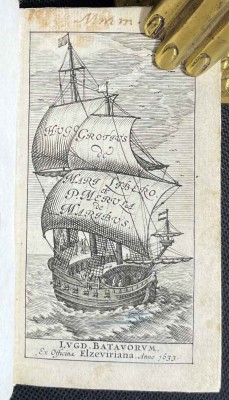 HUGO GROTIUS
De
MARI LIBERO
et
P. MERULA
de
MARIBUS.
LVGD. BATAVORVM.
Ex Officina Elzeviriana. Anno 1633